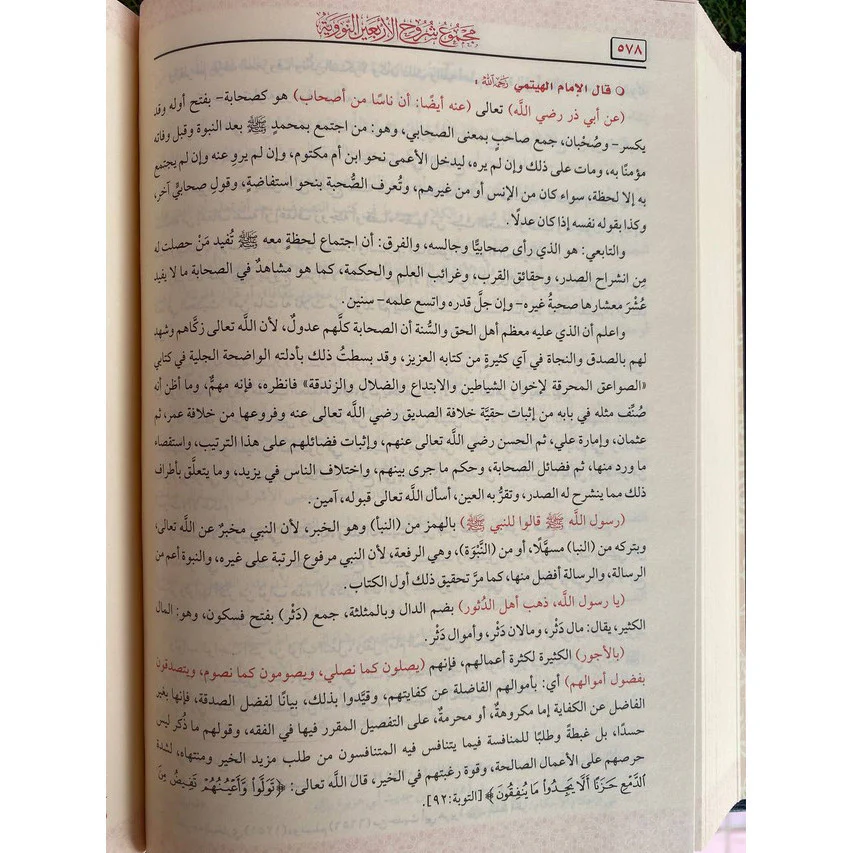 مجموع شروح الأربعين النووية
٥٧٨
○ قال الإمام الهيتمي رحمه الله :
(عن أبي ذر رضي الله) تعالى (عنه أيضًا: أن ناسًا من أصحاب) هو كصحابة- بفتح أوله وقد
يكسر- وصُحْبان، جمع صاحبٍ بمعنى الصحابي، وهو: من اجتمع بمحمدٍ ﷺ بعد النبوة وقبل وفاته
مؤمنًا به، ومات على ذلك وإن لم يره، ليدخل الأعمى نحو ابن أم مكتوم، وإن لم يروِ عنه وإن لم يجتمع
به إلا لحظة، سواء كان من الإنس أو من غيرهم، وتُعرف الصُّحبة بنحو استفاضةٍ، وقولِ صحابيٍّ آخر،
وكذا بقوله نفسه إذا كان عدلًا.
والتابعي: هو الذي رأى صحابيًّا وجالسه، والفرق: أن اجتماع لحظةٍ معه ﷺ تُفيد مَنْ حصلت له
مِن انشراح الصدر، وحقائق القرب، وغرائب العلم والحكمة، كما هو مشاهدٌ في الصحابة ما لا يفيد
عُشْرَ معشارها صحبةُ غيره- وإن جلَّ قدره واتسع علمه- سنين.
واعلم أن الذي عليه معظم أهل الحق والسُّنة أن الصحابة كلَّهم عدولٌ، لأن اللَّه تعالى زكَّاهم وشهد
لهم بالصدق والنجاة في آي كثيرةٍ من كتابه العزيز، وقد بسطتُ ذلك بأدلته الواضحة الجلية في كتابي
«الصواعق المحرقة لإخوان الشياطين والابتداع والضلال والزندقة» فانظره، فإنه مهمٌّ، وما أظن أنه
صُنِّف مثله في بابه من إثبات حقيَّة خلافة الصديق رضي اللَّه تعالى عنه وفروعها من خلافة عمر، ثم
عثمان، وإمارة علي، ثم الحسن رضي اللَّه تعالى عنهم، وإثبات فضائلهم على هذا الترتيب، واستقصاء
ما ورد منها، ثم فضائل الصحابة، وحكم ما جرى بينهم، واختلاف الناس في يزيد، وما يتعلَّق بأطراف
ذلك مما ينشرح له الصدر، وتقرُّ به العين، أسأل اللَّه تعالى قبوله، آمين.
(رسول اللَّه ﷺ قالوا للنبي ﷺ) بالهمز من (النبأ) وهو الخبر، لأن النبي مخبرٌ عن اللَّه تعالى،
وبتركه من (النبا) مسهَّلًا، أو من (النَّبْوَة)، وهي الرفعة، لأن النبي مرفوع الرتبة على غيره، والنبوة أعم من
الرسالة، والرسالة أفضل منها، كما مرَّ تحقيق ذلك أول الكتاب.
(يا رسول اللَّه، ذهب أهل الدُثور) بضم الدال وبالمثلثة، جمع (دَثْر) بفتح فسكون، وهو: المال
الكثير، يقال: مال دَثْر، ومالان دَثْر، وأموال دَثْر.
(بالأجور) الكثيرة لكثرة أعمالهم، فإنهم (يصلون كما نصلي، ويصومون كما نصوم، ويتصدقون
بفضول أموالهم) أي: بأموالهم الفاضلة عن كفايتهم، وقيَّدوا بذلك، بيانًا لفضل الصدقة، فإنها بغير
الفاضل عن الكفاية إما مكروهةٌ، أو محرمةٌ، على التفصيل المقرر فيها في الفقه، وقولهم ما ذُكر ليس
حسدًا، بل غبطةً وطلبًا للمنافسة فيما يتنافس فيه المتنافسون من طلب مزيد الخير ومنتهاه، لشدة
حرصهم على الأعمال الصالحة، وقوة رغبتهم في الخير، قال اللَّه تعالى: ﴿تَوَلَّوا۟ وَّأَعْيُنُهُمْ تَفِيضُ مِنَ
ٱلدَّمْعِ حَزَنًا أَلَّا يَجِدُوا۟ مَا يُنفِقُونَ﴾ [التوبة:٩٢].